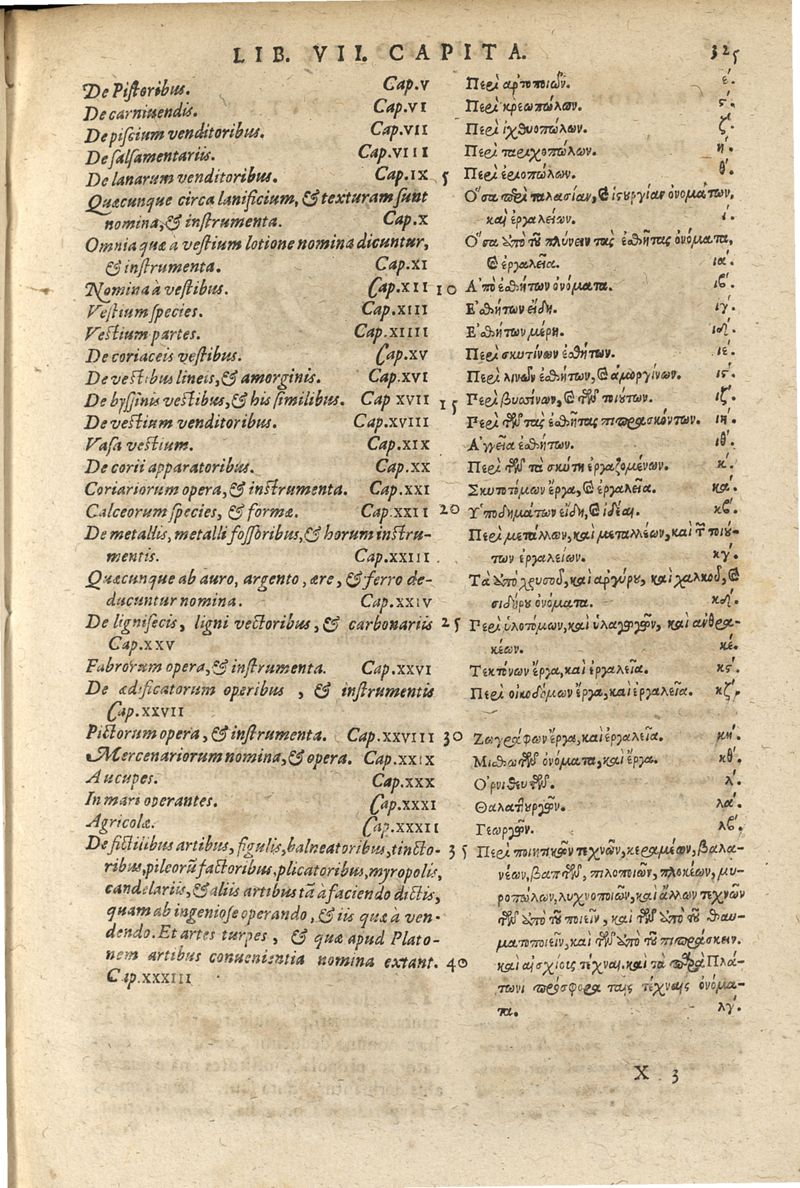 LIB. VII. CAPITA. 325
De Pistoribus. Cap.V
De carniuendis. Cap.VI
De piscium venditoribus. Cap.VII
De salsamentariis. Cap.VIII
De lanarum venditoribus. Cap.IX 5
Quæcunque circa lanificium, & texturam sunt
nomina, & instrumenta. Cap.X
Omnia quæ a vestium lotione nomina dicuntur,
& instrumenta. Cap.XI
Nomina à vestibus. Cap.XII 10
Vestium species. Cap.XIII
Vestium partes. Cap.XIIII
De coriaceis vestibus. Cap.XV
De vestibus lineis, & amorginis. Cap.XVI
De byssinis vestibus, & his similibus. Cap XVII 15
De vestium venditoribus. Cap.XVIII
Vasa vestium. Cap.XIX
De corii apparatoribus. Cap.XX
Coriariorum opera, & instrumenta. Cap.XXI
Calceorum species, & formæ. Cap.XXII 20
De metallis, metalli fossoribus, & horum instru-
mentis. Cap.XXIII
Quæcunque ab auro, argento, ære, & ferro de-
ducuntur nomina. Cap.XXIV
De lignisecis, ligni vectoribus, & carbonariis 25
Cap.XXV
Fabrorum opera, & instrumenta. Cap.XXVI
De ædificatorum operibus, & instrumentis
Cap.XXVII
Pictorum opera, & instrumenta. Cap.XXVIII 30
Mercenariorum nomina, & opera. Cap.XXIX
Aucupes. Cap.XXX
In mari operantes. Cap.XXXI
Agricolæ. Cap.XXXII
De fictilibus artibus, figulis, balneatoribus, tincto- 35
ribus, pileorũ factoribus, plicatoribus, myropolis,
candelariis, & aliis artibus tã à faciendo dictis,
quam ab ingeniose operando, & iis quæ à ven-
dendo. Et artes turpes, & quæ apud Plato-
nem artibus conuenientia nomina extant. 40
Cap.XXXIII
Περὶ ἀρτοποιῶν. έ.
Περὶ κρεωπώλων. ϛ΄.
Περὶ ἰχθυοπώλων. ζ΄.
Περὶ ταριχοπώλων. ή.
Περὶ ἐριοπώλων. θ΄.
Ὅσα περὶ ταλασίαν, καὶ ἱστουργίαν ὀνομάτων,
καὶ ἐργαλείων. ί.
Ὅσα ὑπὸ τοῦ πλύνειν τὰς ἐσθῆτας ὀνόματα,
καὶ ἐργαλεῖα. ιά.
Ἀπὸ ἐσθήτων ὀνόματα. ιβ΄.
Ἐσθήτων εἴδη. ιγ΄.
Ἐσθήτων μέρη. ιδ΄.
Περὶ σκυτίνων ἐσθήτων. ιέ.
Περὶ λινῶν ἐσθήτων, καὶ ἀμοργίνων. ιϛ΄.
Περὶ βυσσίνων, καὶ τῶν τοιούτων. ιζ΄.
Περὶ τῶν τὰς ἐσθῆτας πιπρασκόντων. ιή.
Ἀγγεῖα ἐσθήτων. ιθ΄.
Περὶ τῶν τὰ σκύτη ἐργαζομένων. κ΄.
Σκυτοτόμων ἔργα, καὶ ἐργαλεῖα. κά.
Ὑποδημάτων εἴδη, καὶ ἰδέαι. κβ΄.
Περὶ μετάλλων, καὶ μεταλλέων, καὶ τῶν τοιού-
των ἐργαλείων. κγ΄.
Τὰ ὑπὸ χρυσοῦ, καὶ ἀργύρου, καὶ χαλκοῦ, καὶ
σιδήρου ὀνόματα. κδ΄.
Περὶ ὑλοτόμων, καὶ ὑλαγωγῶν, καὶ ἀνθρα-
κέων. κέ.
Τεκτόνων ἔργα, καὶ ἐργαλεῖα. κϛ΄.
Περὶ οἰκοδόμων ἔργα, καὶ ἐργαλεῖα. κζ΄.
Ζωγράφων ἔργα, καὶ ἐργαλεῖα. κή.
Μισθωτῶν ὀνόματα, καὶ ἔργα. κθ΄.
Ὀρνιθευτῶν. λ΄.
Θαλαττουργῶν. λά.
Γεωργῶν. λβ΄.
Περὶ ποιητικῶν τεχνῶν, κεραμέων, βαλα-
νέων, βαπτῶν, πιλοποιῶν, πλοκέων, μυ-
ροπώλων, λυχνοποιῶν, καὶ ἄλλων τεχνῶν
τῶν ὑπὸ τοῦ ποιεῖν, καὶ τῶν ὑπὸ τοῦ θαυ-
ματοποιεῖν, καὶ τῶν ὑπὸ τοῦ πιπράσκειν.
καὶ αἰσχίους τέχναι. καὶ τὰ παρὰ Πλά-
τωνι πρόσφορα ταῖς τέχναις ὀνόμα-
τα. λγ΄.
X 3